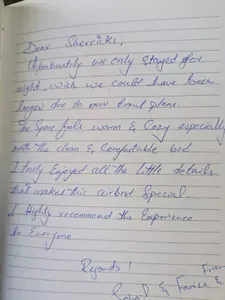 Dear Sherricks,
Unfortunately we only stayed for
night, wish we could have been
longer due to our travel plans.
The Space feels warm & Cozy especially
with the clean & Comfortable bed
I truly Enjoyed all the little details
that makes this airbnb Special.
I Highly recommend the Experience
to Everyone
Regards!
&
From